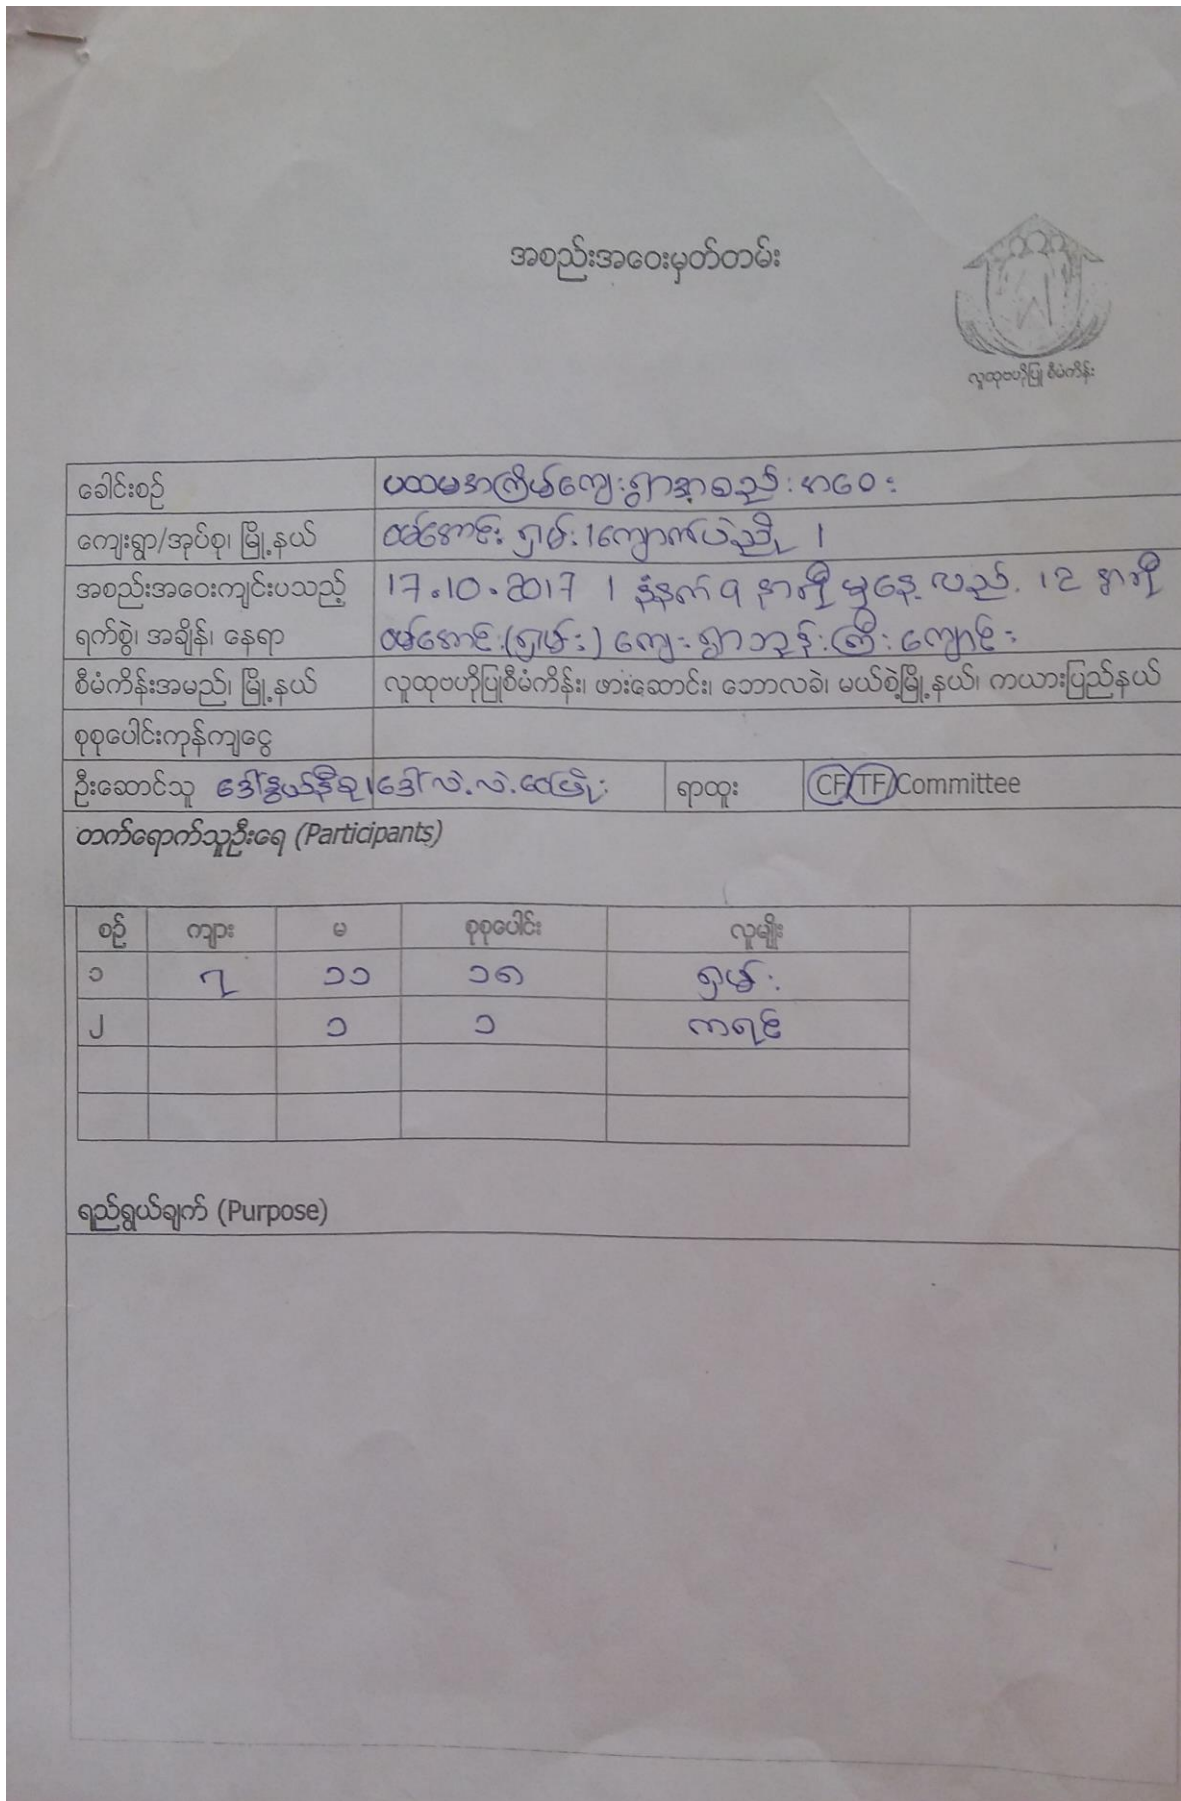 အစည်းအဝေးမှတ်တမ်း
လူထုဗဟိုပြု စီမံကိန်း
ခေါင်းစဉ် ပထမအကြိမ်ကျေးရွာအစည်းအဝေး
ကျေးရွာ/အုပ်စု၊ မြို့နယ် ဝမ်အောင်း ရှမ်း၊ကျောက်ပဲညို ၊
အစည်းအဝေးကျင်းပသည့် 17.10.2017 ၊ နံနက် ၉ နာရီ မှ နေ့လည် 12 နာရီ
ရက်စွဲ၊ အချိန်၊ နေရာ ဝမ်အောင်း(ရှမ်း) ကျေးရွာဘုန်းကြီးကျောင်း
စီမံကိန်းအမည်၊ မြို့နယ် လူထုဗဟိုပြုစီမံကိန်း၊ ဖားဆောင်း၊ ဘောလခဲ၊ မယ်စဲ့မြို့နယ်၊ ကယားပြည်နယ်
စုစုပေါင်းကုန်ကျငွေ
ဦးဆောင်သူ ဒေါ်နွယ်နီခု၊ဒေါ်လဲ့လဲ့ဝေဖြိုး ရာထူး CF/TF/Committee
တက်ရောက်သူဦးရေ (Participants)
စဉ် ကျား မ စုစုပေါင်း လူမျိုး
၁ ၇ ၁၁ ၁၈ ရှမ်း
၂ ၁ ၁ ကရင်
ရည်ရွယ်ချက် (Purpose)